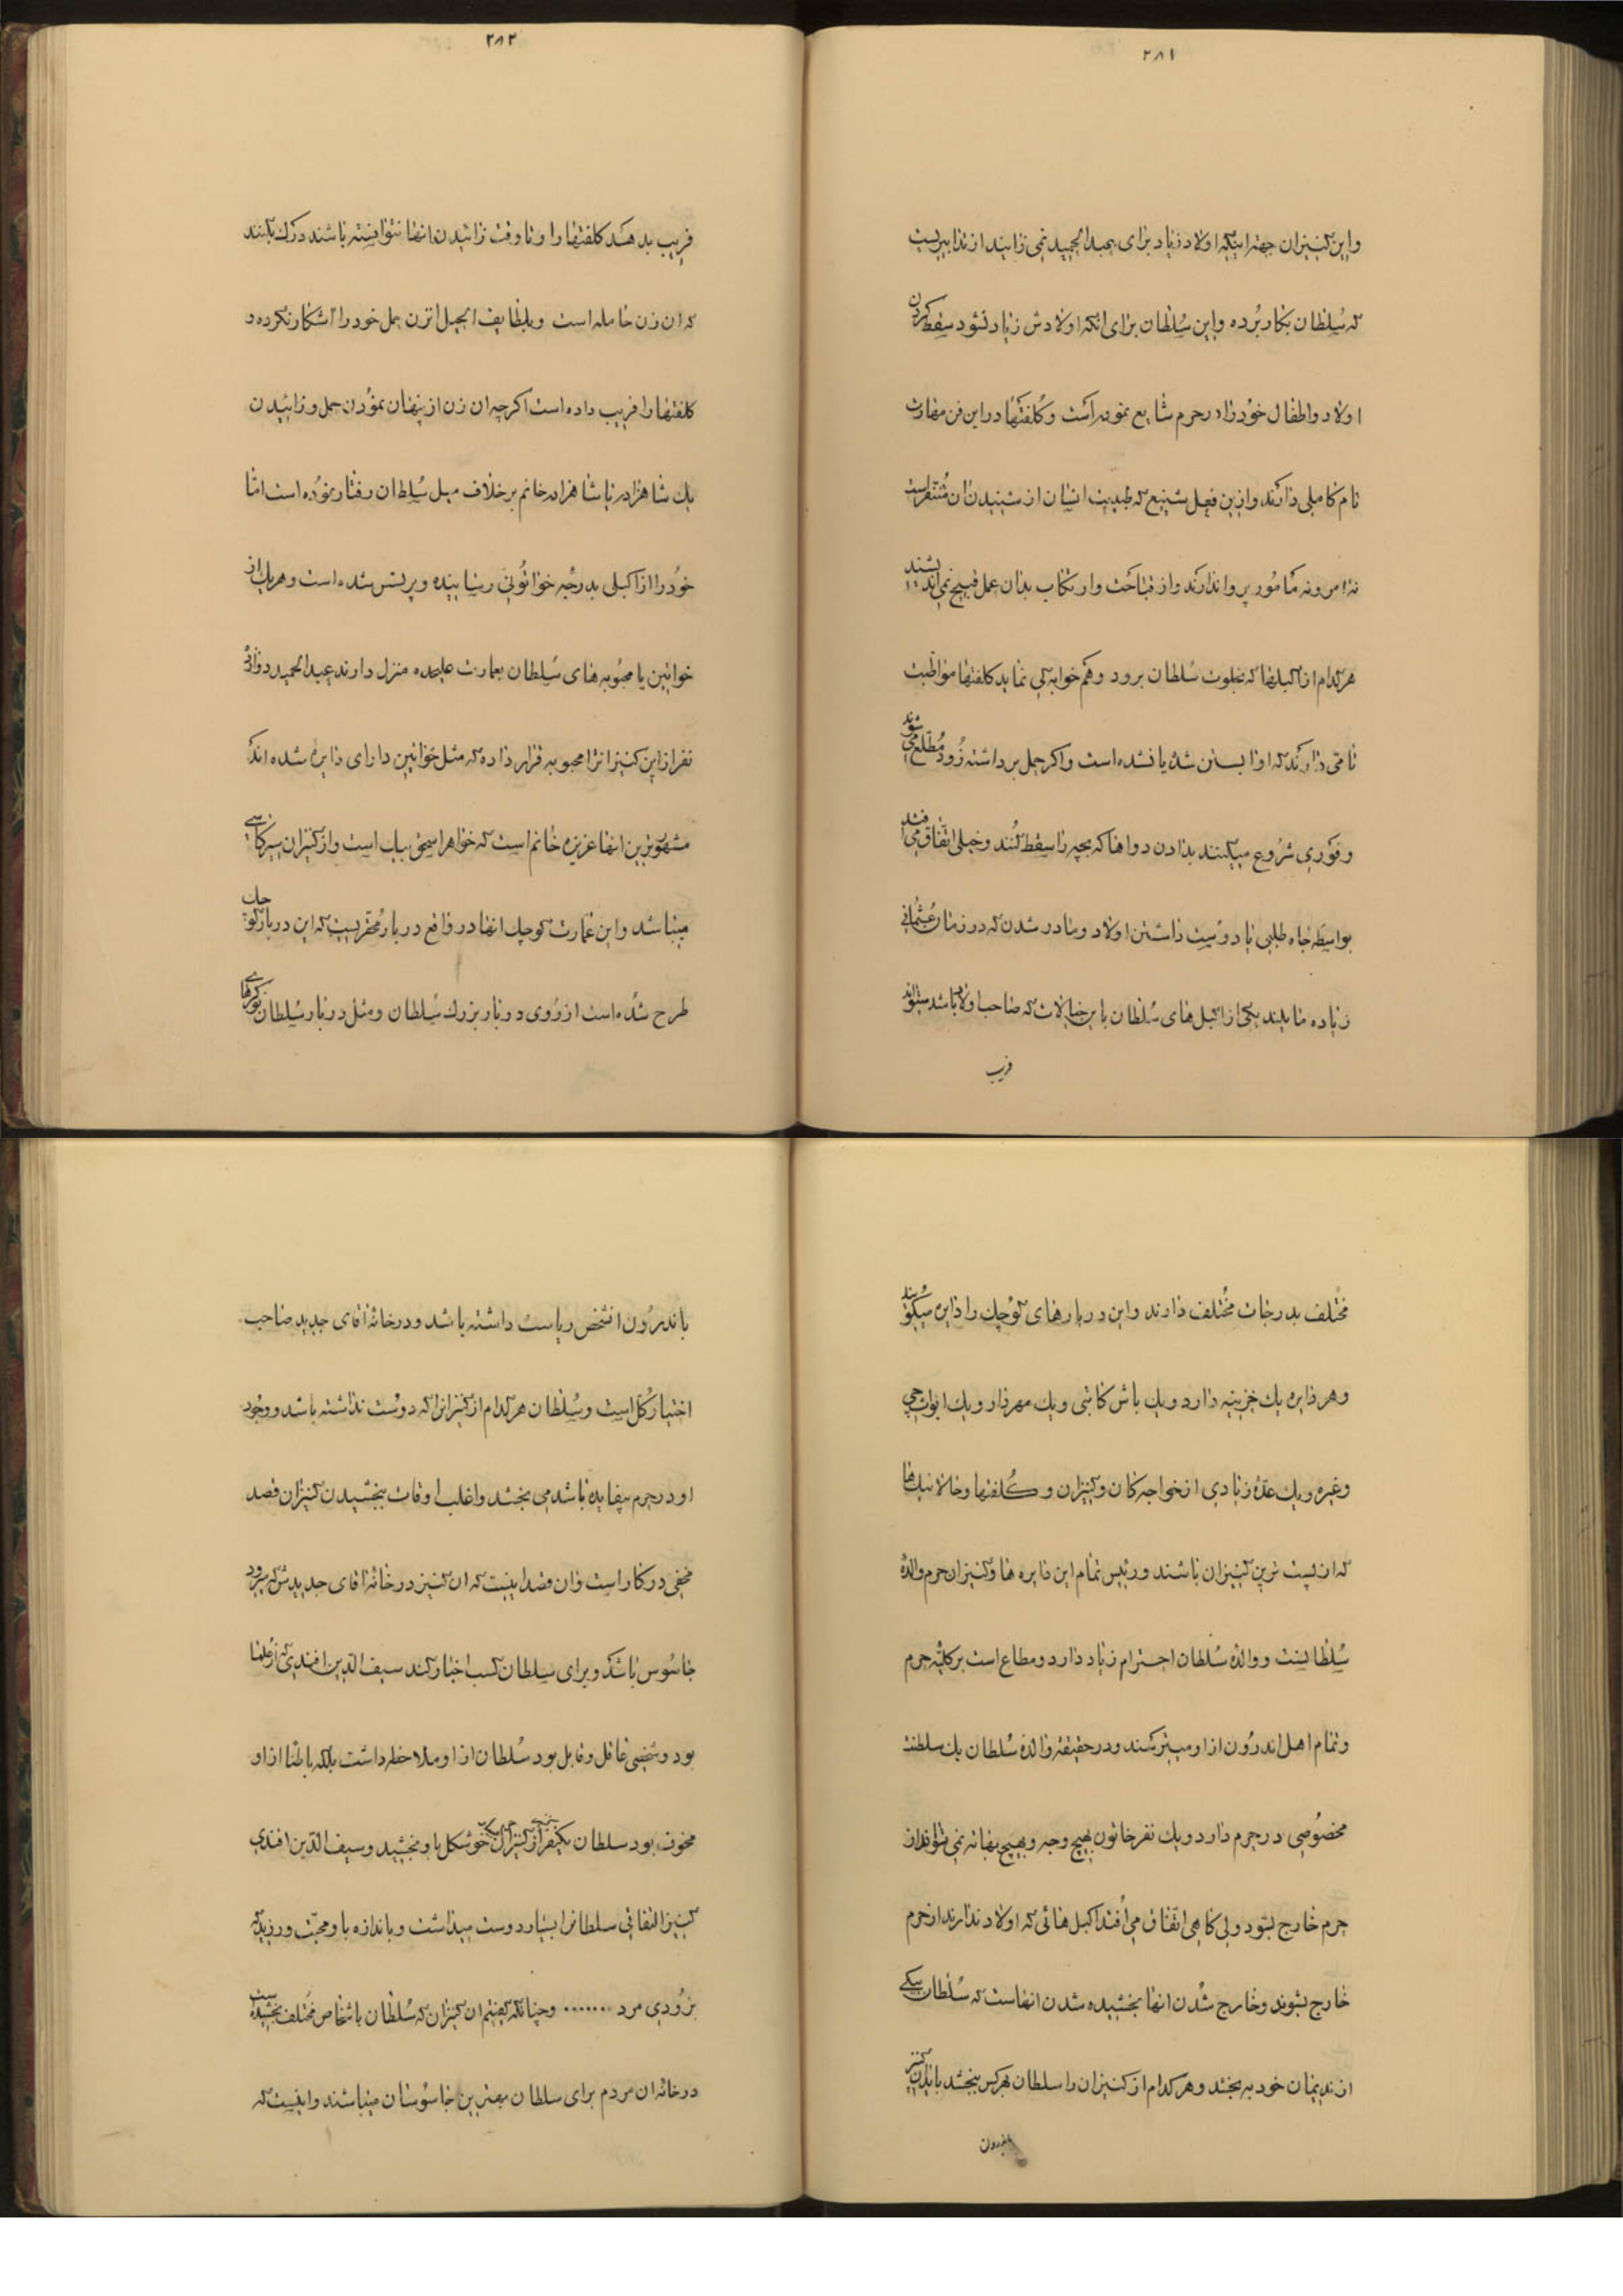 ۲۸۱
و این کنیزان جهة اینکه اولاد زیاد برای عبدالحمید نمی زایند از تدابیریست
که سُلطان بکار بُرده و این سُلطان برای انکه اولادش زیاد نشود سقط کردن
اولاد و اطفال خوُد را در حرم شایع نموده است و کُلفتها در این فن مهارت
تام کاملی دارند و ازین فعل شنیع که طبیعت انسان از شنیدن آن مُتنفّر است
نه امر و نه مأمُور پروا ندارند و از قباحت و ارتکاب بدان عمل قبیح نمی اندیشند
هر کدام از اکبلها که بخلوت سُلطان برود و هم خوابه کی نماید کلفتها مواظبت
تامی دارند که او ابستن شده یا نشده است و اکر حمل برداشته زُود مُطّلع می شوند
و فوری شرُوع میکنند بدادن دواها که بچه را سقط کُنند و خیلی اتّفاق می افتد
بواسطه جاه طلبی یا دوُست داشتن اولاد و مادر شدن که در زمان عُثمانی
زیاده مایلند یکی از اکبل های سُلطان باین خیالات که صاحب اولاد باشد میتواند
فریب
۲۸۲
فریب بدهد کلفتها را و تا وقت زائیدن انها نتوانسته باشند درک بکنند
که ان زن حامله است و بلطایف الحیل انزن حمل خود را اشکار نکرده و
کلفتها را فریب داده است اکرچه ان زن از پنهان نموُدن حمل و زائیدن
یک شاهزاده یا شاهزاده خانم بر خلاف میل سُلطان رفتار نموُده است امّا
خوُد را از اکبلی بدرجه خواتُونی رسانیده و پرنسس شده است و هر یک از
خواتین یا محبُوبه های سُلطان بعمارت علیحده منزل دارند عبدالحمید دوازده
نفر از این کنیزانرا محبوبه قرار داده که مثل خواتین دارای دایره شده اند
مشهوُرترین انها عزیزه خانم است که خواهر اسحق بیاب است و از کنیزان سیرکاسی
میباشد و این عمارت کوچک انها در واقع دربار مُحقّریست که این دربار کوچک
طرح شُده است از رُوی دربار بزرک سُلطان و مثل دربار سُلطان نوکرهای
مختُلف بدرجات مُختلف دارند و این دربارهای کوُچک را دایره میکویُند
و هر دایره یک خزینه دارد و یک باش کاتبی و یک مهردار و یک ابوابچی
و غیره و یک عدّهٔ زیادی از خواجه کان و کنیزان و کُلفتها و خالایک ها
که از پست ترین کنیزان باشند و رئیس تمام این دایره ها و کنیزان حرم والدهٔ
سُلطانست و والدهٔ سُلطان احترام زیاد دارد و مطاع است بر کلیّه حرم
و تمام اهل اندرُون از او میترسند و در حقیقة والدهٔ سُلطان یک سلطنت
مخصُوصی در حرم دارد و یک نفر خاتون بهیچ وجه و بهیچ بهانه نمی تواند از
حرم خارج بشود ولی کاهی اتّفاق می اُفتد اکبل هائی که اولاد ندارند از حرم
خارج بشوند و خارج شُدن انها بخشیده شدن انهاست که سُلطان بیکی
از ندیمان خود به بخشد و هر کدام از کنیزان را سلطان بهر کس ببخشد باید ان کنیز
باندرون
باندرُون انشخص ریاست داشته باشد و در خانهٔ اقای جدید صاحب
اختیار کُل است و سُلطان هر کدام از کنیزانرا که دوُست نداشته باشد و وجوُد
او در حرم بیفایده باشد می بخشد و اغلب اوقات ببخشیدن کنیزان قصد
مخفی در کار است و ان قصد اینست که ان کنیز در خانهٔ اقای جدیدش که میرود
جاسُوس باشد و برای سلطان کسب اخبار کند سیف الدین افندی که از عُلما
بود و شخصی عاقل و قابل بود سُلطان از او ملاحظه داشت بلکه باطنا از او
مخوف بود سلطان یکنفر از کنیزان خوشکل باو بخشید و سیف الدّین افندی
کنیز التفاتی سلطانرا بسیار دوست میداشت و باندازه باو محبّت ورزید که
بزوُدی مرد ....... و چنانکه کفتیم ان کنیزان که سُلطان باشخاص مُختلف بخشیده است
در خانهٔ ان مردم برای سلطان بهترین جاسوُسان میباشند و اینست که